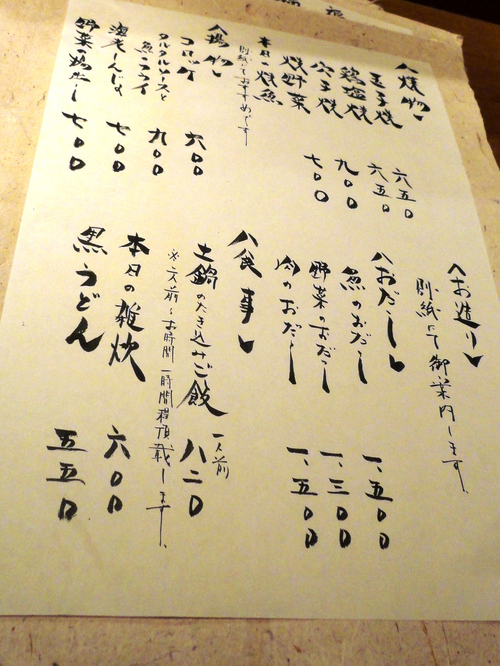 〈焼物〉
玉子焼 六五〇
鶏塩焼 六五〇
穴子焼 九〇〇
焼野菜 七〇〇
本日の焼魚
別紙にておすすめです
〈揚物〉
コロッケ 六〇〇
タルタルソースと
魚フライ 九〇〇
海老しんじょ 七〇〇
野菜 七〇〇
〈お造り〉
別紙にて御案内します。
〈おだし〉
魚のおだし 一、五〇〇
野菜のおだし 一、三〇〇
肉のおだし 一、五〇〇
〈食事〉
土鍋のたき込みご飯 一人前 八二〇
※二人前〜お時間一時間程頂戴します。
本日の雑炊 六〇〇
黒うどん 五五〇